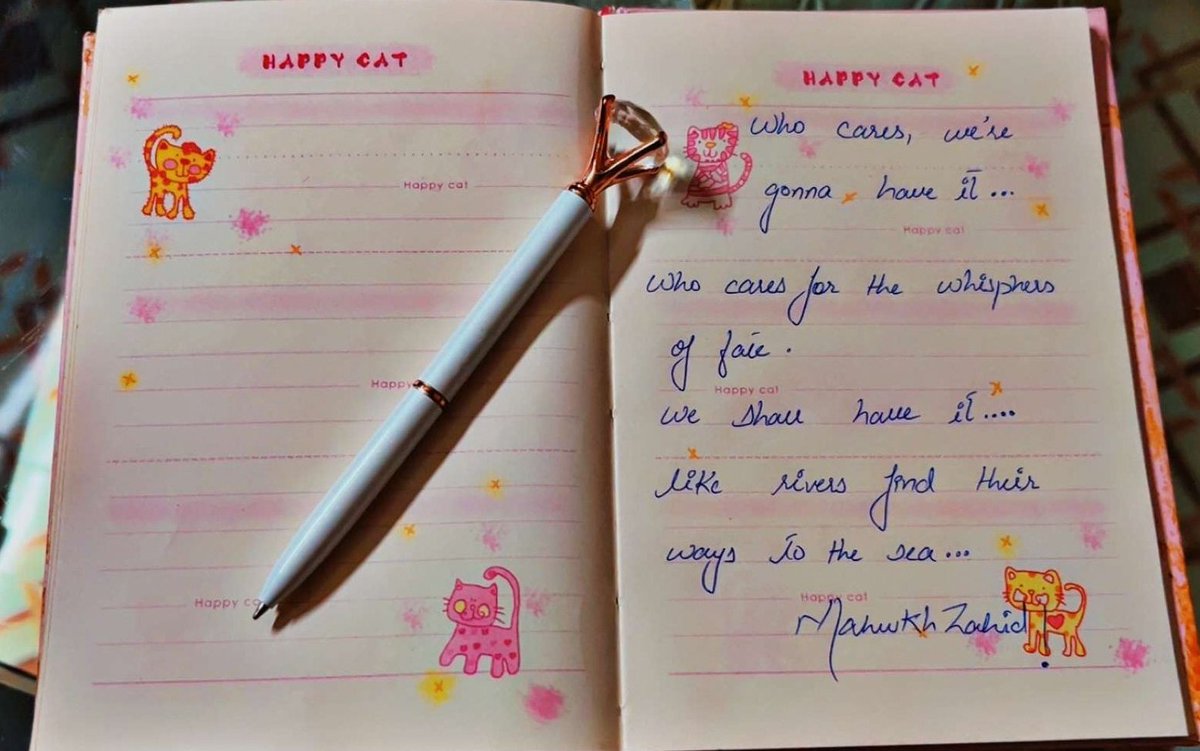 HAPPY CAT
Happy cat
Happy
Happy c
HAPPY CAT
Who cares, we're
gonna have it...
Happy cat
Who cares for the whisphers
of fate.
Happy cat
We shall have it....
like rivers find their
ways to the sea...
Happy cat
Zahid